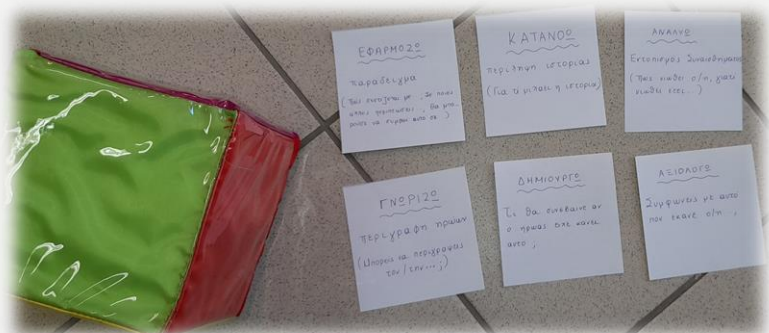 ΕΦΑΡΜΟΖΩ
παράδειγμα
(Πώς συνδέεται με , Σε ποιες
άλλες περιπτώσεις , θα μπο-
ρούσε να συμβεί αυτό σε ..)
ΚΑΤΑΝΟΩ
περίληψη ιστορίας
(Για τι μιλάει η ιστορία)
ΑΝΑΛΥΩ
Εντοπισμός συναισθήματος
(Πώς νιώθει ο/η, γιατί
νιώθει έτσι...)
ΓΝΩΡΙΖΩ
περιγραφή ηρώων
(Μπορείς να περιγράψεις
τον/την...;)
ΔΗΜΙΟΥΡΓΩ
Τι θα συνέβαινε αν
ο ήρωας κάνει
αυτό ;
ΑΞΙΟΛΟΓΩ
Συμφωνείς με αυτό
που έκανε ο/η ;